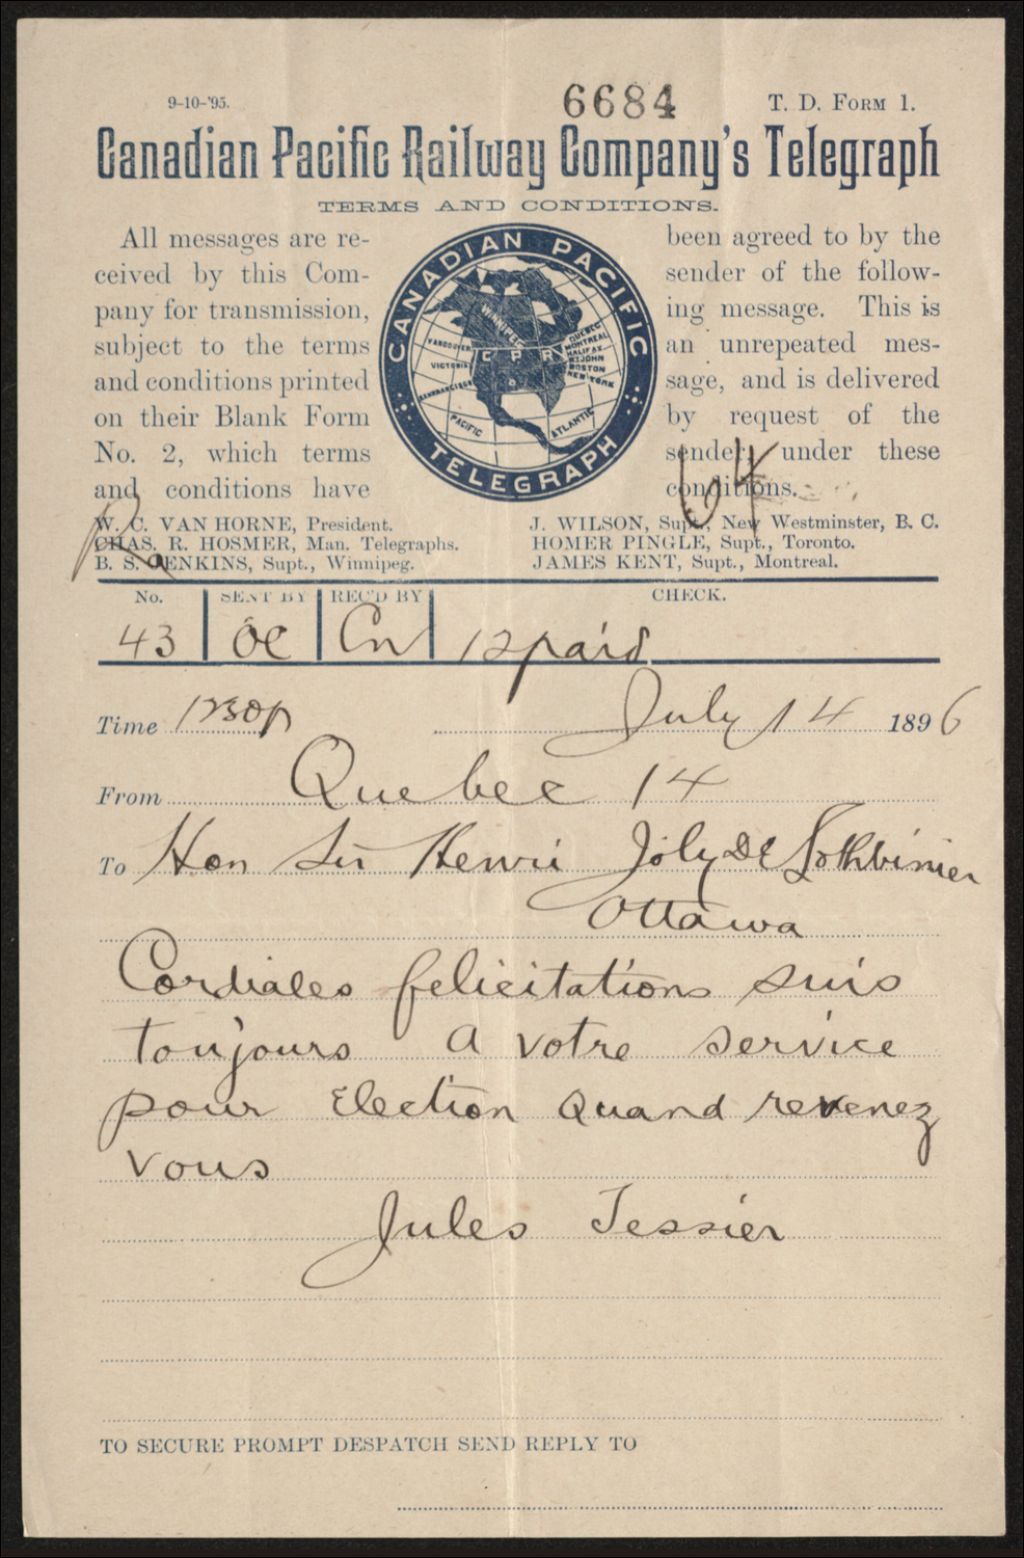 9-10-'95.
6684
T. D. Form 1.
Canadian Pacific Railway Company's Telegraph
TERMS AND CONDITIONS.
All messages are re-
ceived by this Com-
pany for transmission,
subject to the terms
and conditions printed
on their Blank Form
No. 2, which terms
and conditions have
CANADIAN PACIFIC
TELEGRAPH
WINNIPEG
VANCOUVER
VICTORIA
SAN FRANCISCO
C P R
QUEBEC
MONTREAL
HALIFAX
ST JOHN
BOSTON
NEW YORK
PACIFIC
ATLANTIC
been agreed to by the
sender of the follow-
ing message. This is
an unrepeated mes-
sage, and is delivered
by request of the
sender, under these
conditions.
64
W. C. VAN HORNE, President.
CHAS. R. HOSMER, Man. Telegraphs.
B. S. JENKINS, Supt., Winnipeg.
J. WILSON, Supt., New Westminster, B. C.
HOMER PINGLE, Supt., Toronto.
JAMES KENT, Supt., Montreal.
No. SENT BY REC'D BY CHECK.
43 OC Cn 12 paid
Time 1230p July 14 1896
From Quebec 14
To Hon Sir Henri Joly De Lotbinier
Ottawa
Cordiales felicitations suis
toujours a votre service
pour Election quand revenez
vous
Jules Tessier
TO SECURE PROMPT DESPATCH SEND REPLY TO